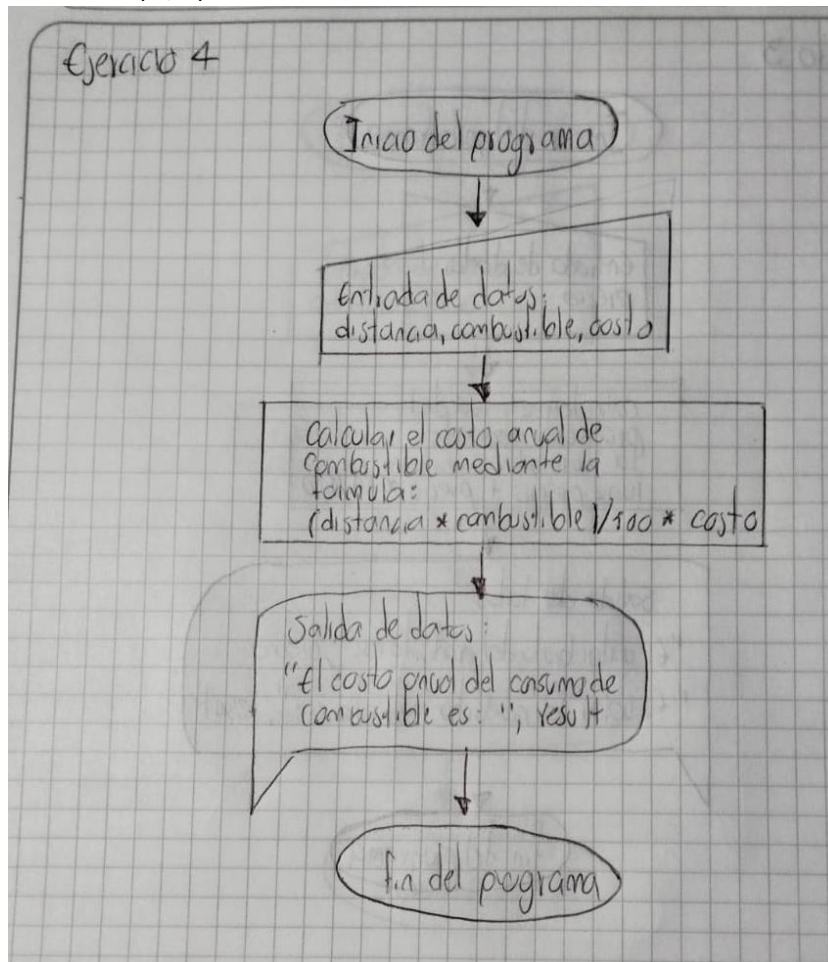 Ejercicio 4
Inicio del programa
Entrada de datos:
distancia, combustible, costo
Calcular el costo anual de
combustible mediante la
formula:
(distancia * combustible)/100 * costo
Salida de datos:
"El costo anual del consumo de
combustible es: ", result
fin del programa